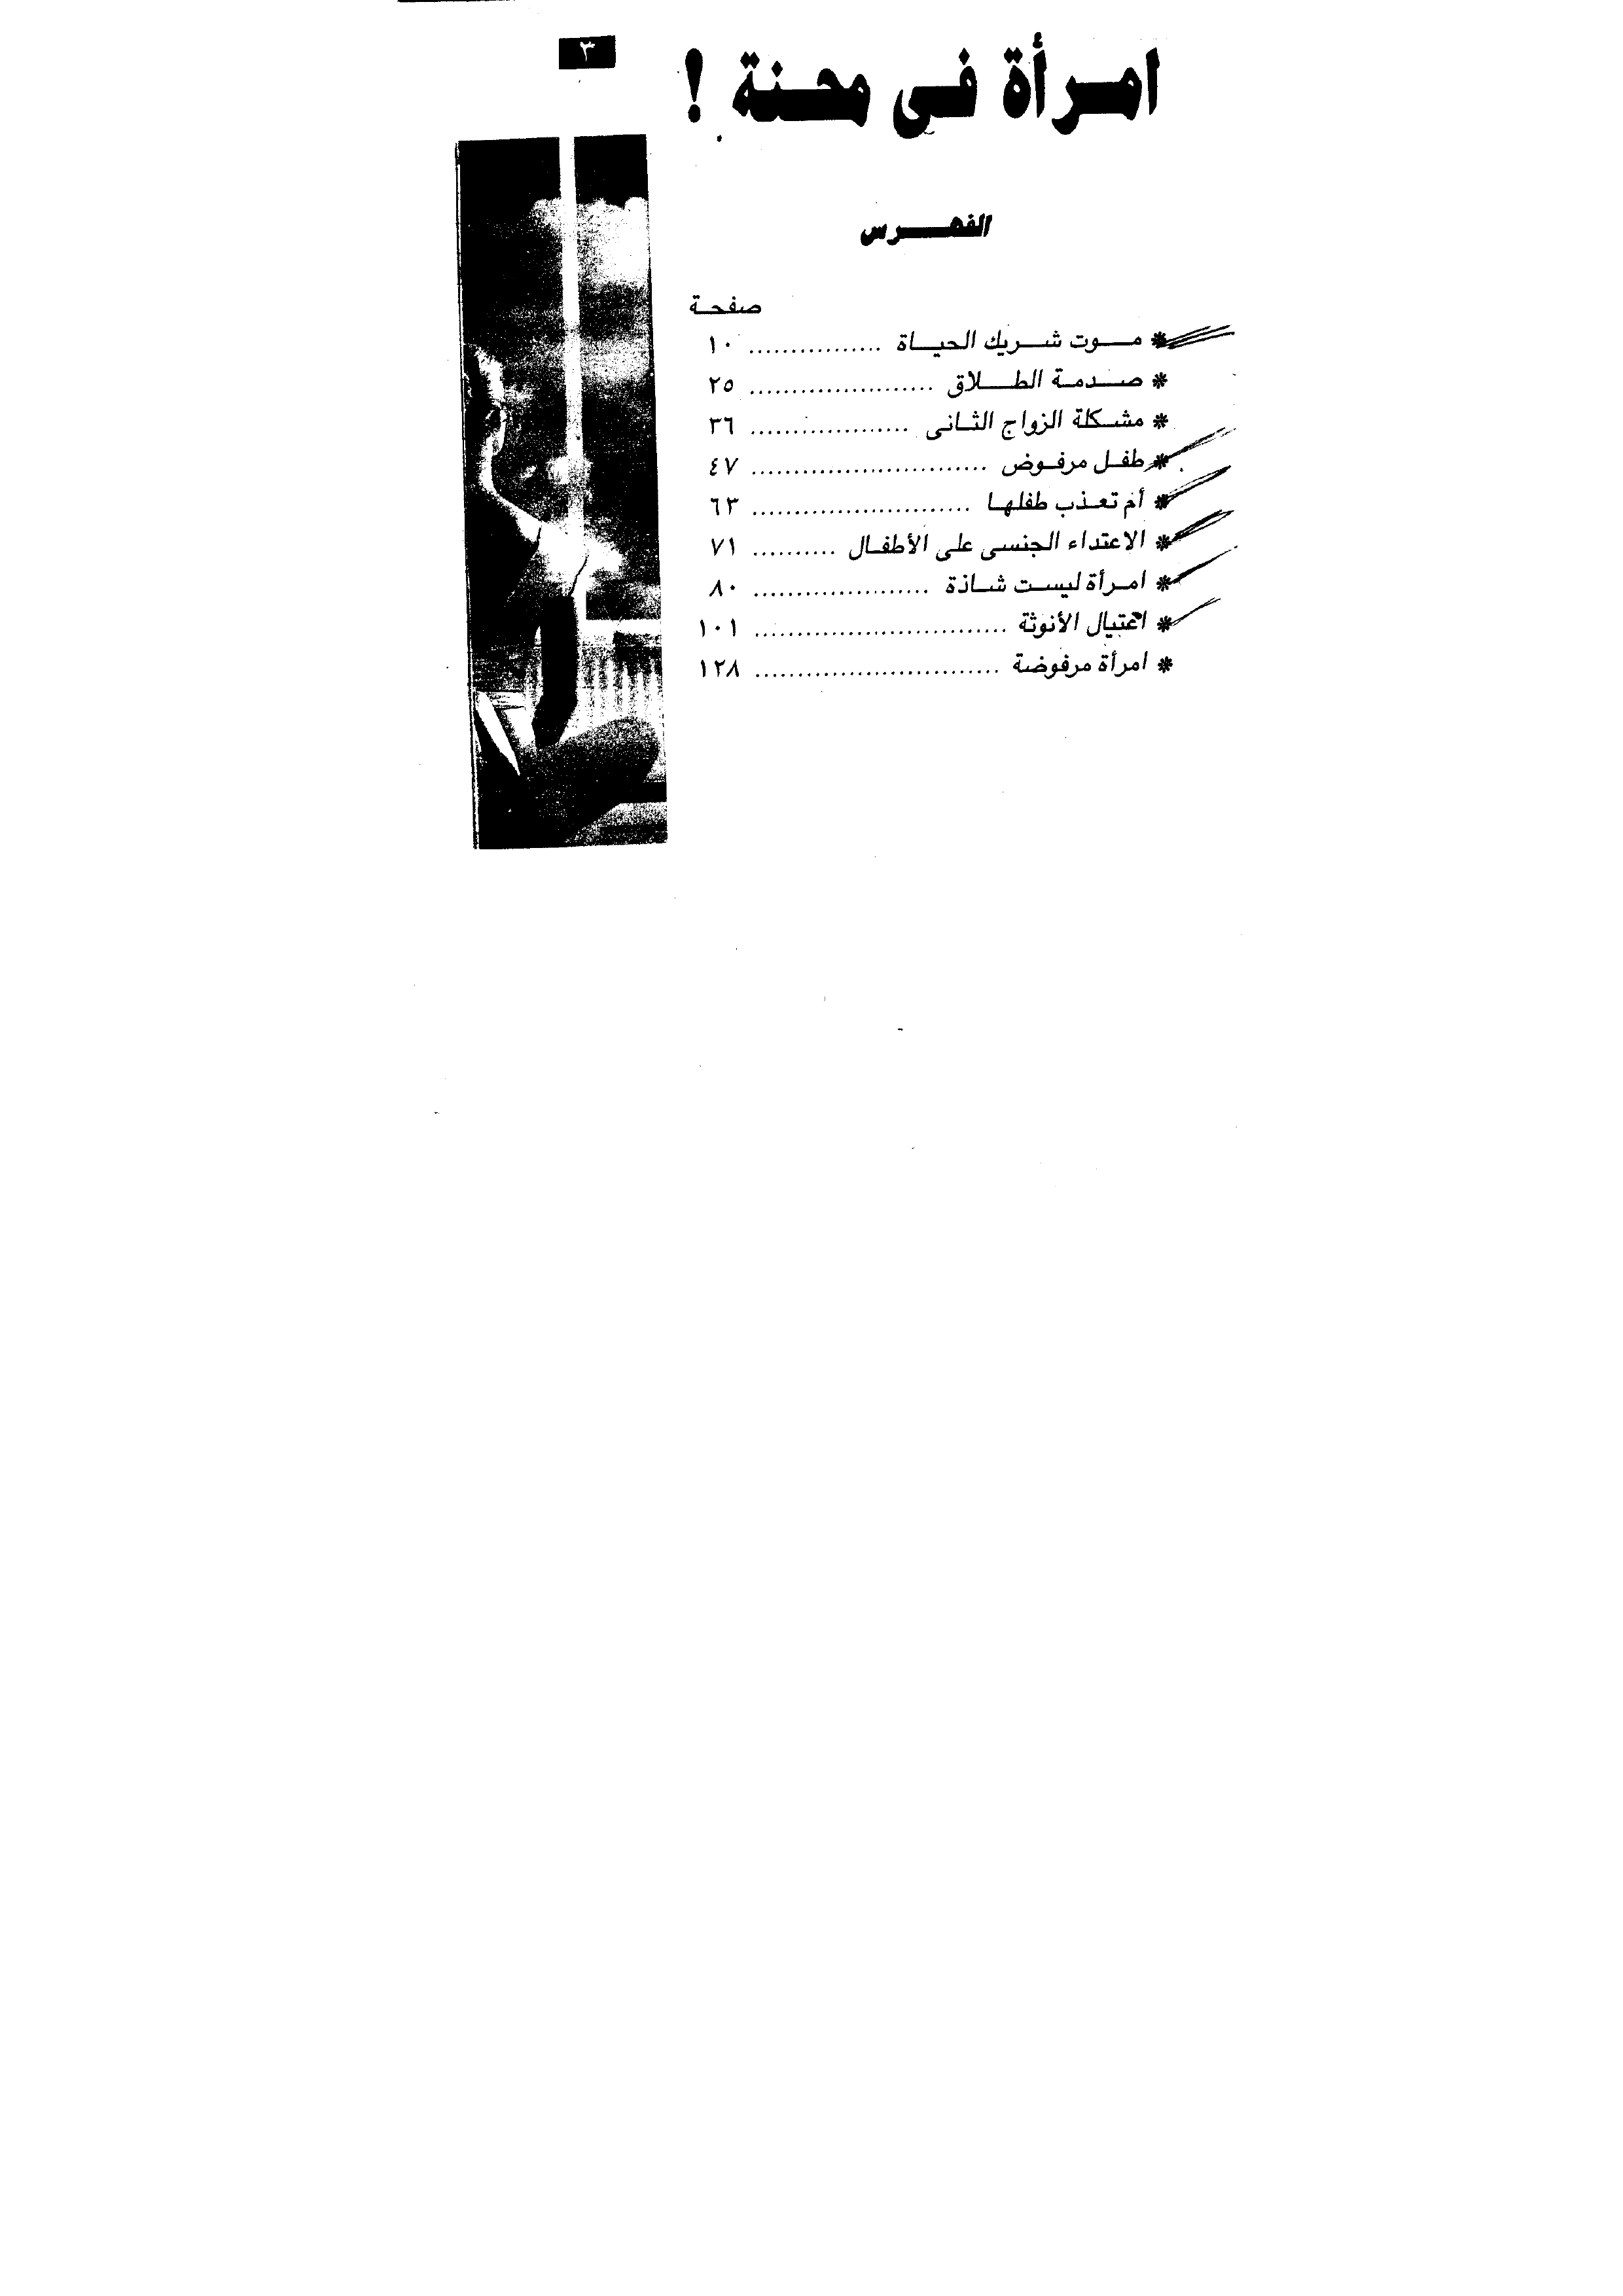 ٣
امرأة فى محنة !
الفهرس
صفحة
* موت شريك الحياة ................ ١٠
* صدمة الطلاق ...................... ٢٥
* مشكلة الزواج الثانى ................... ٣٦
* طفل مرفوض ............................ ٤٧
* أم تعذب طفلها .......................... ٦٣
* الاعتداء الجنسى على الأطفال .......... ٧١
* امرأة ليست شاذة ..................... ٨٠
* اغتيال الأنوثة .............................. ١٠١
* امرأة مرفوضة ............................. ١٢٨